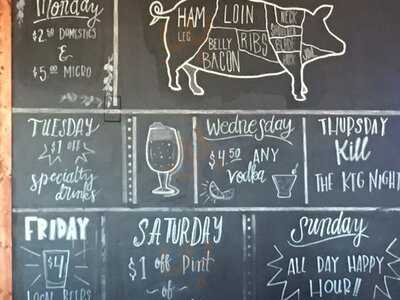 Monday
$2.50 DOMESTICS
&
$5.00 MICRO
HAM
LEG
LOIN
BELLY
BACON
RIBS
NECK
TUESDAY
$1 OFF
specialty
drinks
Wednesday
$4.50 ANY
vodka
THURSDAY
Kill
THE KEG NIGHT
FRIDAY
$4
LOCAL BEERS
SATURDAY
$1 off Pint
of
Sunday
ALL DAY HAPPY
HOUR!!